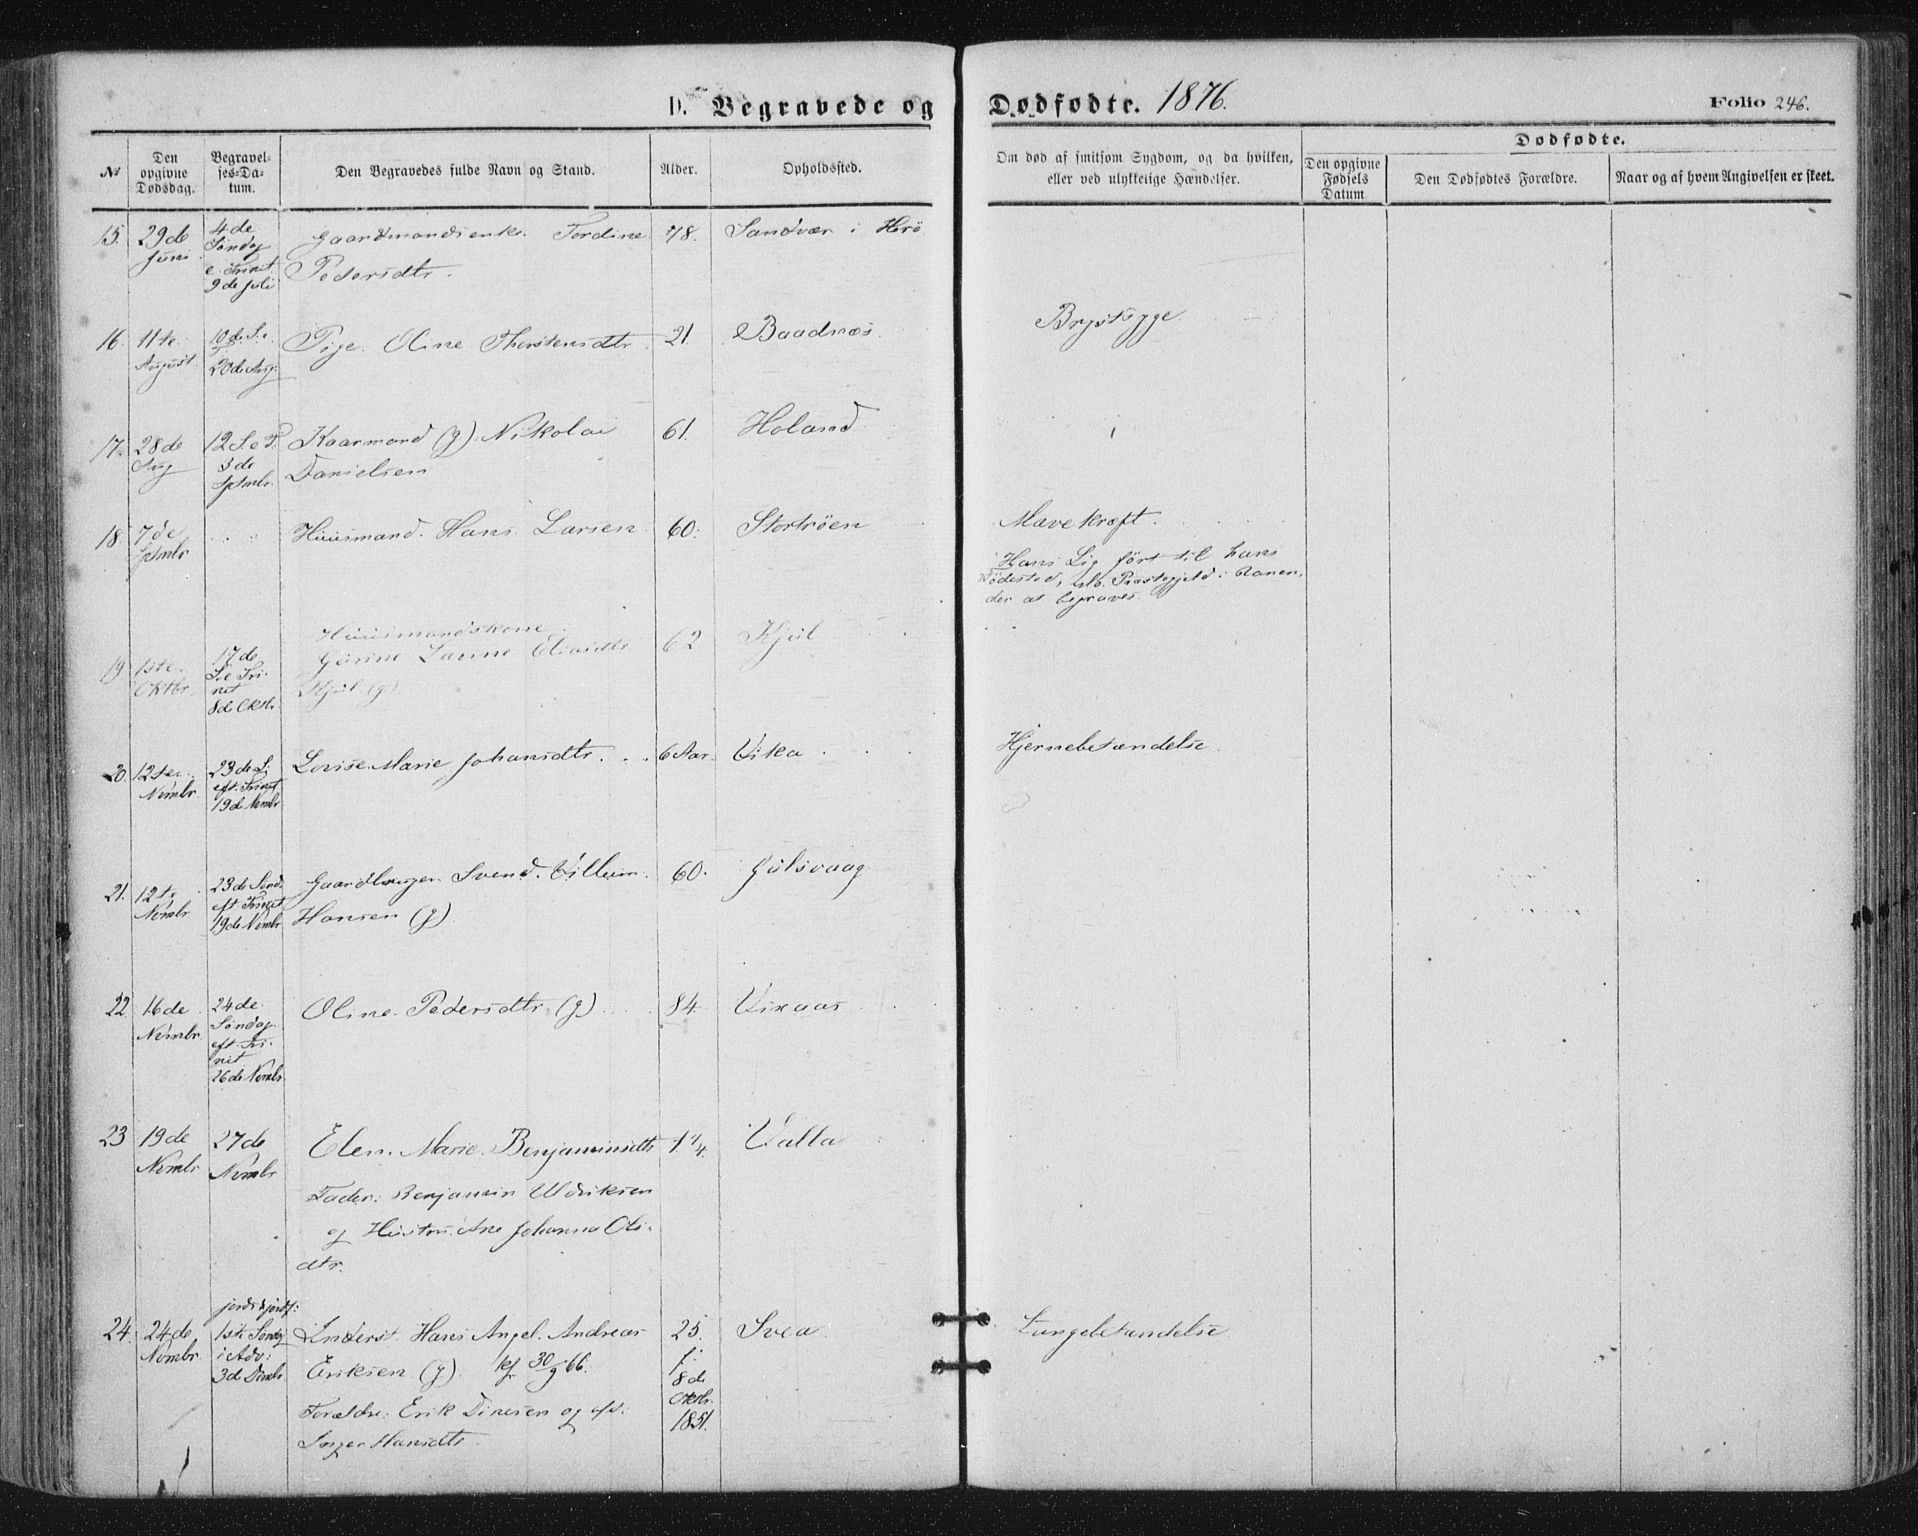 D. Begravede og Dødfødte. 1876. Folio 246.
№
Den opgivne Dødsdag.
Begravelses-Datum.
Den Begravedes fulde Navn og Stand.
Alder.
Opholdssted.
Om død af smitsom Sygdom, og da hvilken, eller ved ulykkelige Hændelser.
Dødfødte.
Den opgivne Fødsels Datum
Den Dødfødtes Forældre.
Naar og af hvem Angivelsen er skeet.
15. 29de Juni
4de Søndag e. Trinit. 9de Juli
Gaardmandsenke Ferdine 78. Sandvær i Herö
Pedersdtr.
16. 11te August
10de S. e. T. 20de Aug.
Pige Oline Thorstensdtr 21. Baadnæs. Brystsyge
17. 28de Aug
12 S. e T. 3de Sptmbr.
Kaarmand (g). Nikolai 61. Holand
Danielsen
18. 7de Sptmbr
Huusmand. Hans Larsen 60. Stortröen Mavekræft.
Hans Lig ført til hans
Födested, Præstegjeld i Ranen,
der at begraves.
19. 1ste Oktbr.
17de S. e Trinit 8de Oktbr.
Huusmandskone
62. Kjöl
Kjöl (g).
20. 12te Nvmbr
23de S. eft. Trinit 19de Nvmbr
Lovise Marie Johansdtr. 6 Aar. Vika Hjernebetændelse.
21. 12te Nvmbr
23de Sønd. eft. Trinit 19de Nvmbr
Gaardbruger Svend Villum 60. Gulsvaag
Hansen (g).
22 16de Nvmbr
24de Søndag eft. Trinit 26de Nvmbr
Oline Pedersdtr (g) 84. Vixaas
23 19de Nvmbr
27de Nvmbr
Elen Marie Benjaminsdtr 1 1/4. Valla
Fader: Benjamin Uldriksen
og Hustru Ane Johanna Olsdtr.
24. 24de Nvmbr.
1ste Søndag i Adv: 3de Dcmbr
Inderst. Hans Angel Andreas 25. Svea Lungebetændelse
Eriksen (g). kf 30/9 66. f: 8de Oktbr. 1851.
Forældre: Erik Dinesen og
Inger Hansdtr.